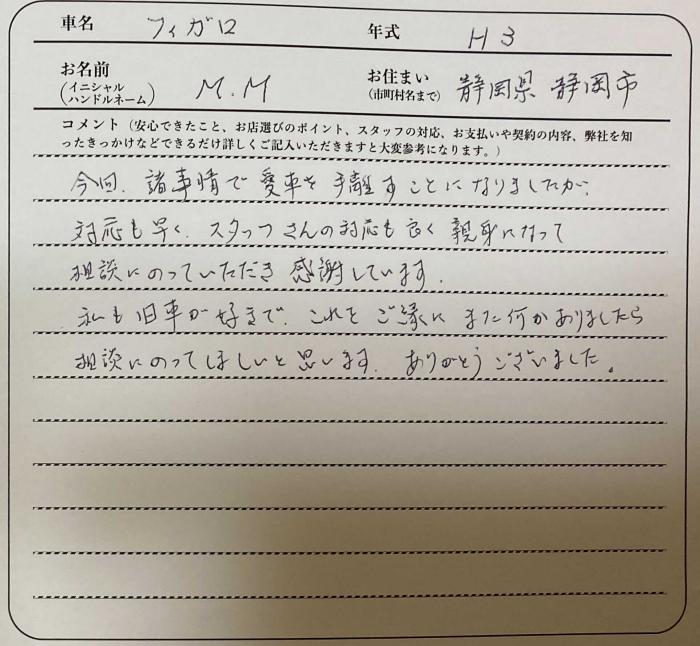 車名 フィガロ 年式 H3
お名前 (イニシャル ハンドルネーム) M.M お住まい (市町村名まで) 静岡県 静岡市
コメント（安心できたこと、お店選びのポイント、スタッフの対応、お支払いや契約の内容、弊社を知
ったきっかけなどできるだけ詳しくご記入いただきますと大変参考になります。）
今回、諸事情で愛車を手離すことになりましたが、
対応も早く、スタッフさんの対応も良く親身になって
相談にのっていただき感謝しています.
私も旧車が好きで、これをご縁にまた何かありましたら
相談にのってほしいと思います. ありがとうございました。